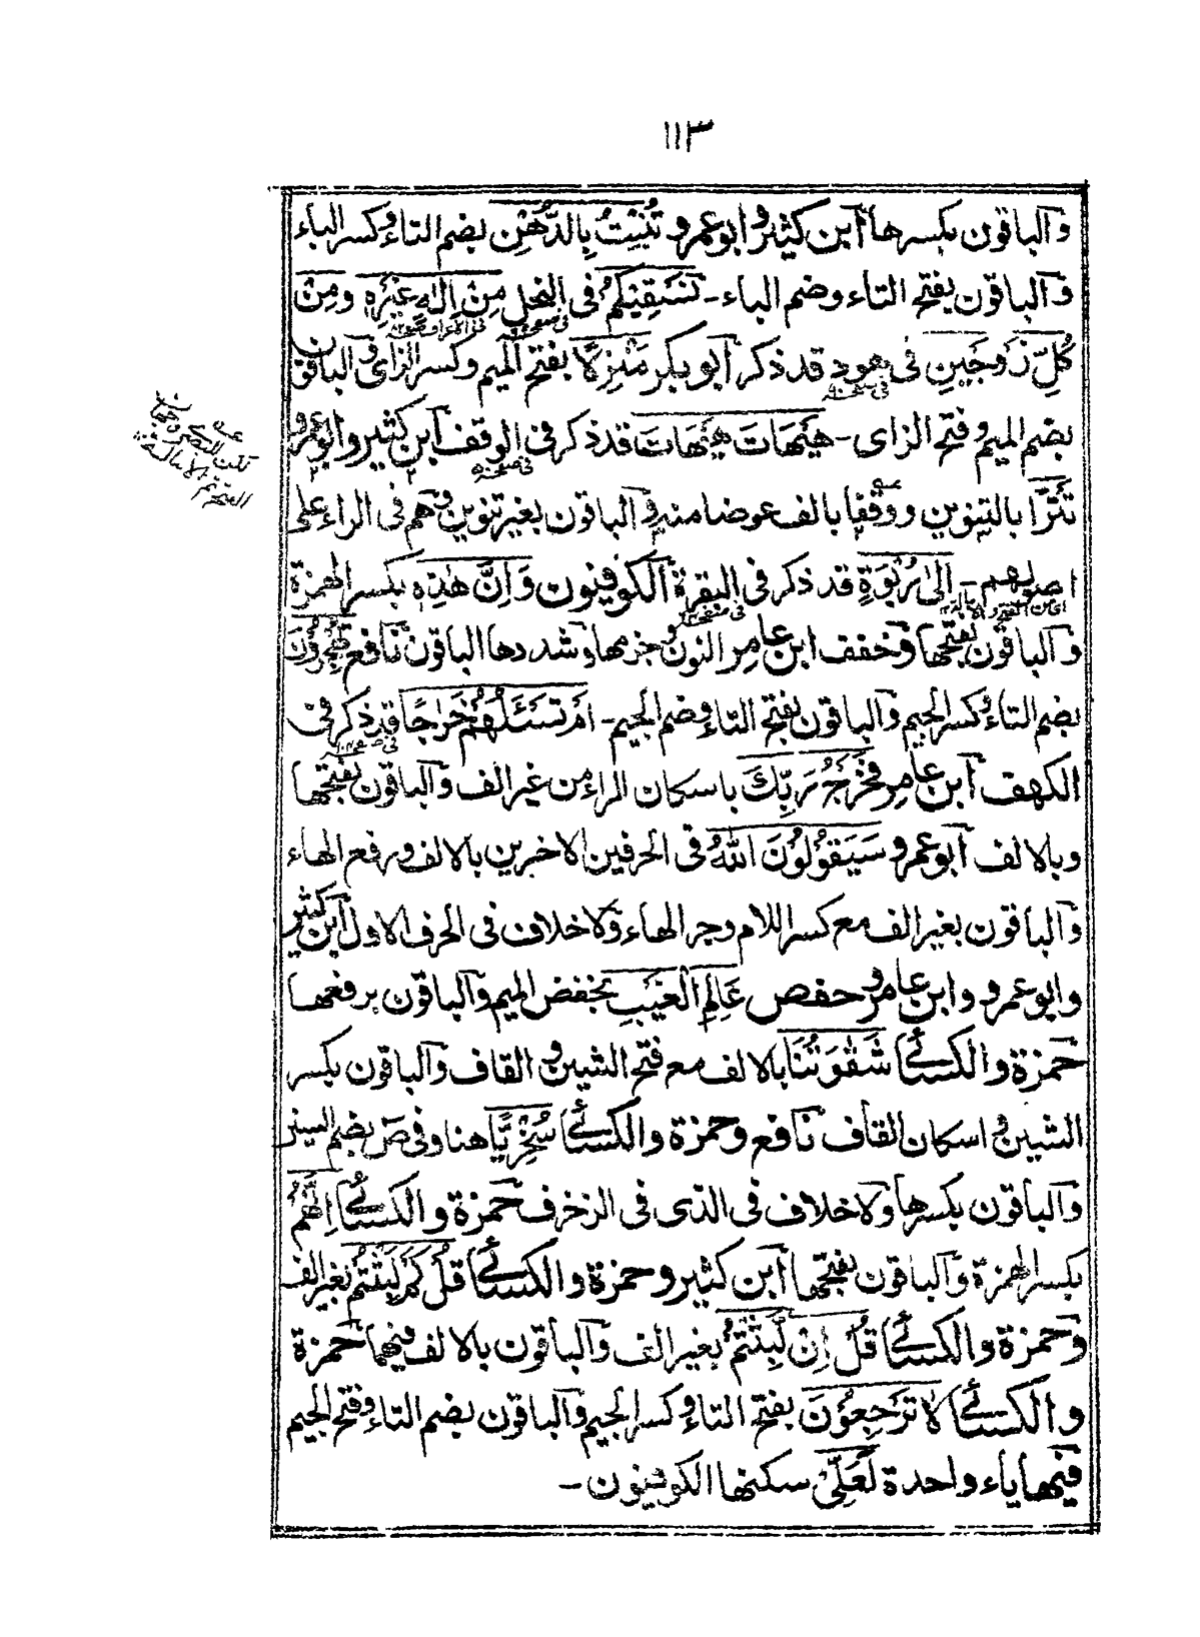 ١١٣
والباقون بكسرها ابن كثير وابو عمرو تُنۢبِتُ بِالدُّهْنِ بضم التاء وكسر الباء
والباقون بفتح التاء وضم الباء - نُسْقِيْكُمْ فى النحل مِنْ اِلٰهٍ غَيْرِهٖ ومِنْ
فى صفحة
فى الاعراف صفحة
كُلِّ زَوْجَيْنِ فى هود قد ذكر ابو بكر مَنْزِلًا بفتح الميم وكسر الزاى والباقون
فى صفحة
بضم الميم وفتح الزاى - هَيْهَاتَ هَيْهَاتَ قد ذكر فى الوقف ابن كثير وابو عمرو
فى صفحة
تَتْرًا بالتنوين ووقفا بالف عوضا منه والباقون بغير تنوين وهم فى الراء على
اصولهم - اِلٰى رَبْوَةٍ قد ذكر فى البقرة الكوفيون وَاِنَّ هٰذِهٖ بكسر الهمزة
فى صفحة
والباقون بفتحها وخفف ابن عامر النون وجزمها وشددها الباقون نافع تُهْجِرُوْنَ
بضم التاء وكسر الجيم والباقون بفتح التاء وضم الجيم - اَمْ تَسْئَلُهُمْ خَرَاجًا قد ذكر فى
فى صفحة
الكهف ابن عامر فَخَرْجُ رَبِّكَ باسكان الراء من غير الف والباقون بفتحها
وبالالف ابو عمرو سَيَقُوْلُوْنَ اللّٰهُ فى الحرفين الاخيرين بالالف ورفع الهاء
والباقون بغير الف مع كسر اللام وجر الهاء ولا خلاف فى الحرف الاول ابن كثير
وابو عمرو وابن عامر وحفص عَالِمِ الْغَيْبِ بخفض الميم والباقون برفعها
حمزة والكسائى شَقٰوَتُنَا بالالف مع فتح الشين والقاف والباقون بكسر
الشين واسكان القاف نافع وحمزة والكسائى سُخْرِيًّا هنا وفى صٓ بضم السين
والباقون بكسرها ولا خلاف فى الذى فى الزخرف حمزة والكسائى اِنَّهُمْ
بكسر الهمزة والباقون بفتحها ابن كثير وحمزة والكسائى قُلْ كَمْ لَبِثْتُمْ بغير الف
وحمزة والكسائى قُلْ اِنْ لَّبِثْتُمْ بغير الف والباقون بالالف فيهما حمزة
والكسائى لَا تَرْجِعُوْنَ بفتح التاء وكسر الجيم والباقون بضم التاء وفتح الجيم
فيها ياء واحدة لَعَلِّىْ سكنها الكوفيون -